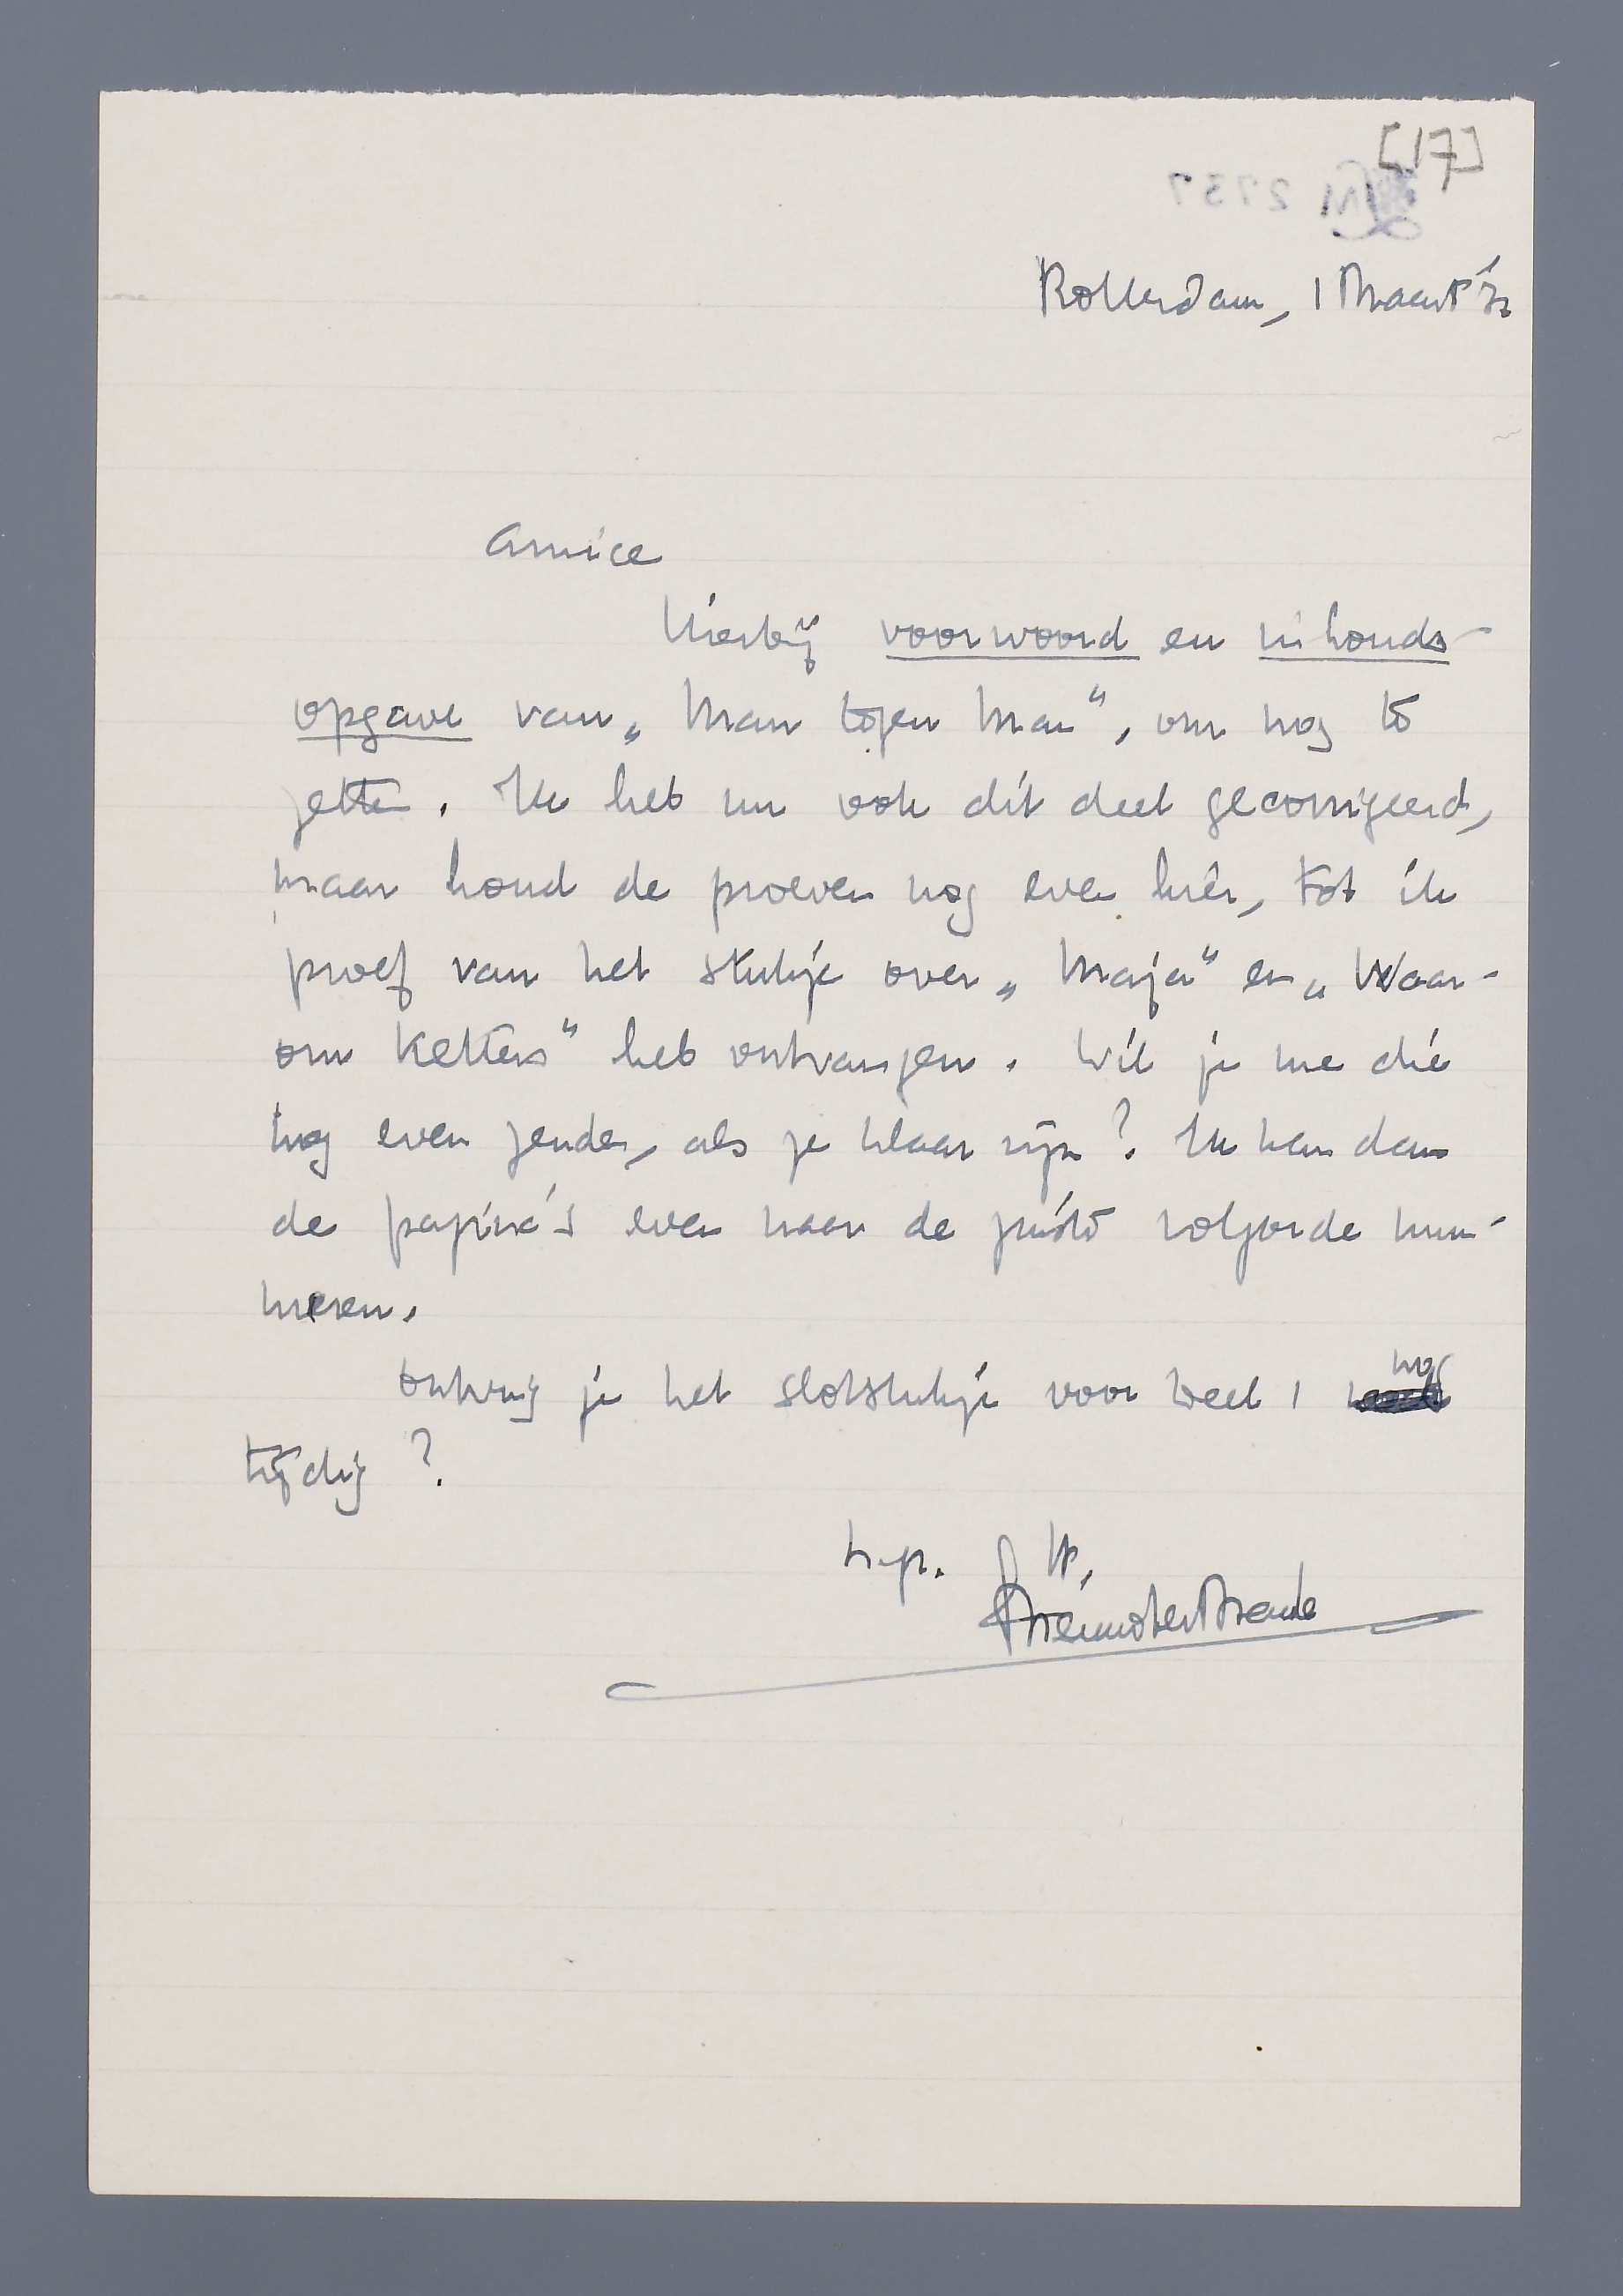 [17]
LM 2737
Rotterdam, 1 Maart '32
Amice
Hierbij voorwoord en inhouds-
opgave van „Man tegen Man“, om nog te
zetten. Ik heb nu ook dit deel gecorrigeerd,
maar houd de proeven nog even hier, tot ik
proef van het stukje over „Maja“ en „Waar-
om Ketters“ heb ontvangen. Wil je me die
nog even zenden, als ze klaar zijn? Ik kan dan
de pagina's even naar de juiste volgorde num-
meren.
Ontving je het slotstukje voor deel 1 nog
tijdig?
h. gr. t. t.
Menno ter Braak